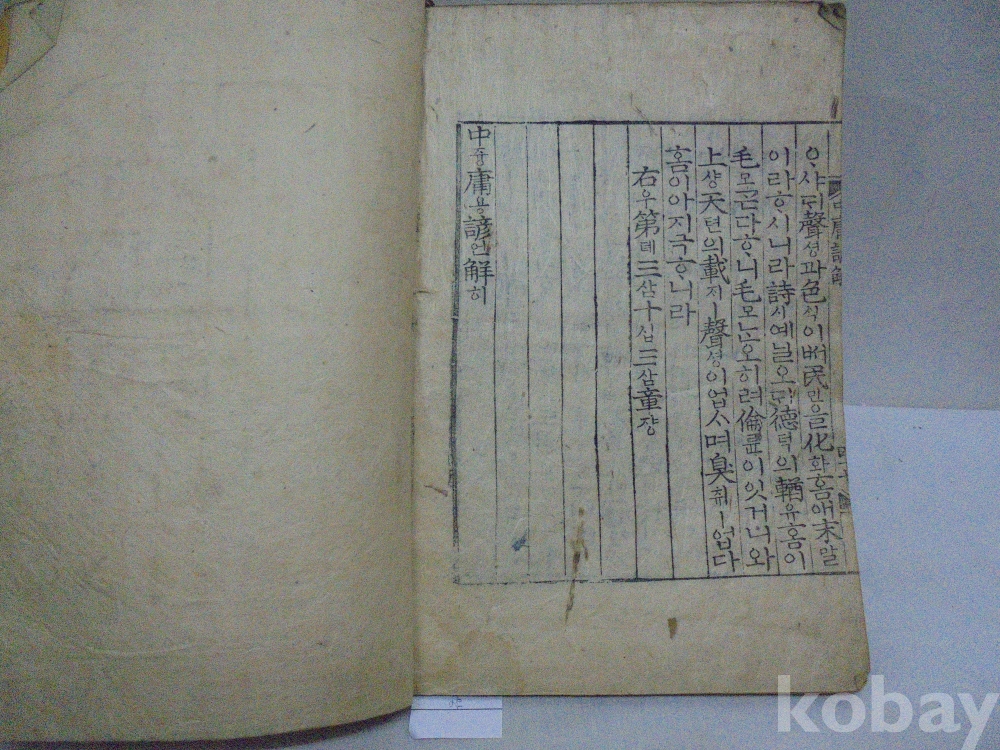 中庸諺解
ᄋᆞ샤ᄃᆡ聲셩과色식이ᄡᅥ民민을化화홈애末말
이라ᄒᆞ시니라詩시예닐오ᄃᆡ德덕의輶유홈이
毛모ᄀᆞᆮ다ᄒᆞ니毛모ᄂᆞᆫ오히려倫륜이잇거니와
上샹天텬의載ᄌᆡㅣ聲셩이업스며臭취ㅣ업다
홈이아지극ᄒᆞ니라
右우第뎨三삼十십三삼章쟝
中듕庸용諺언解ᄒᆡ
kobay